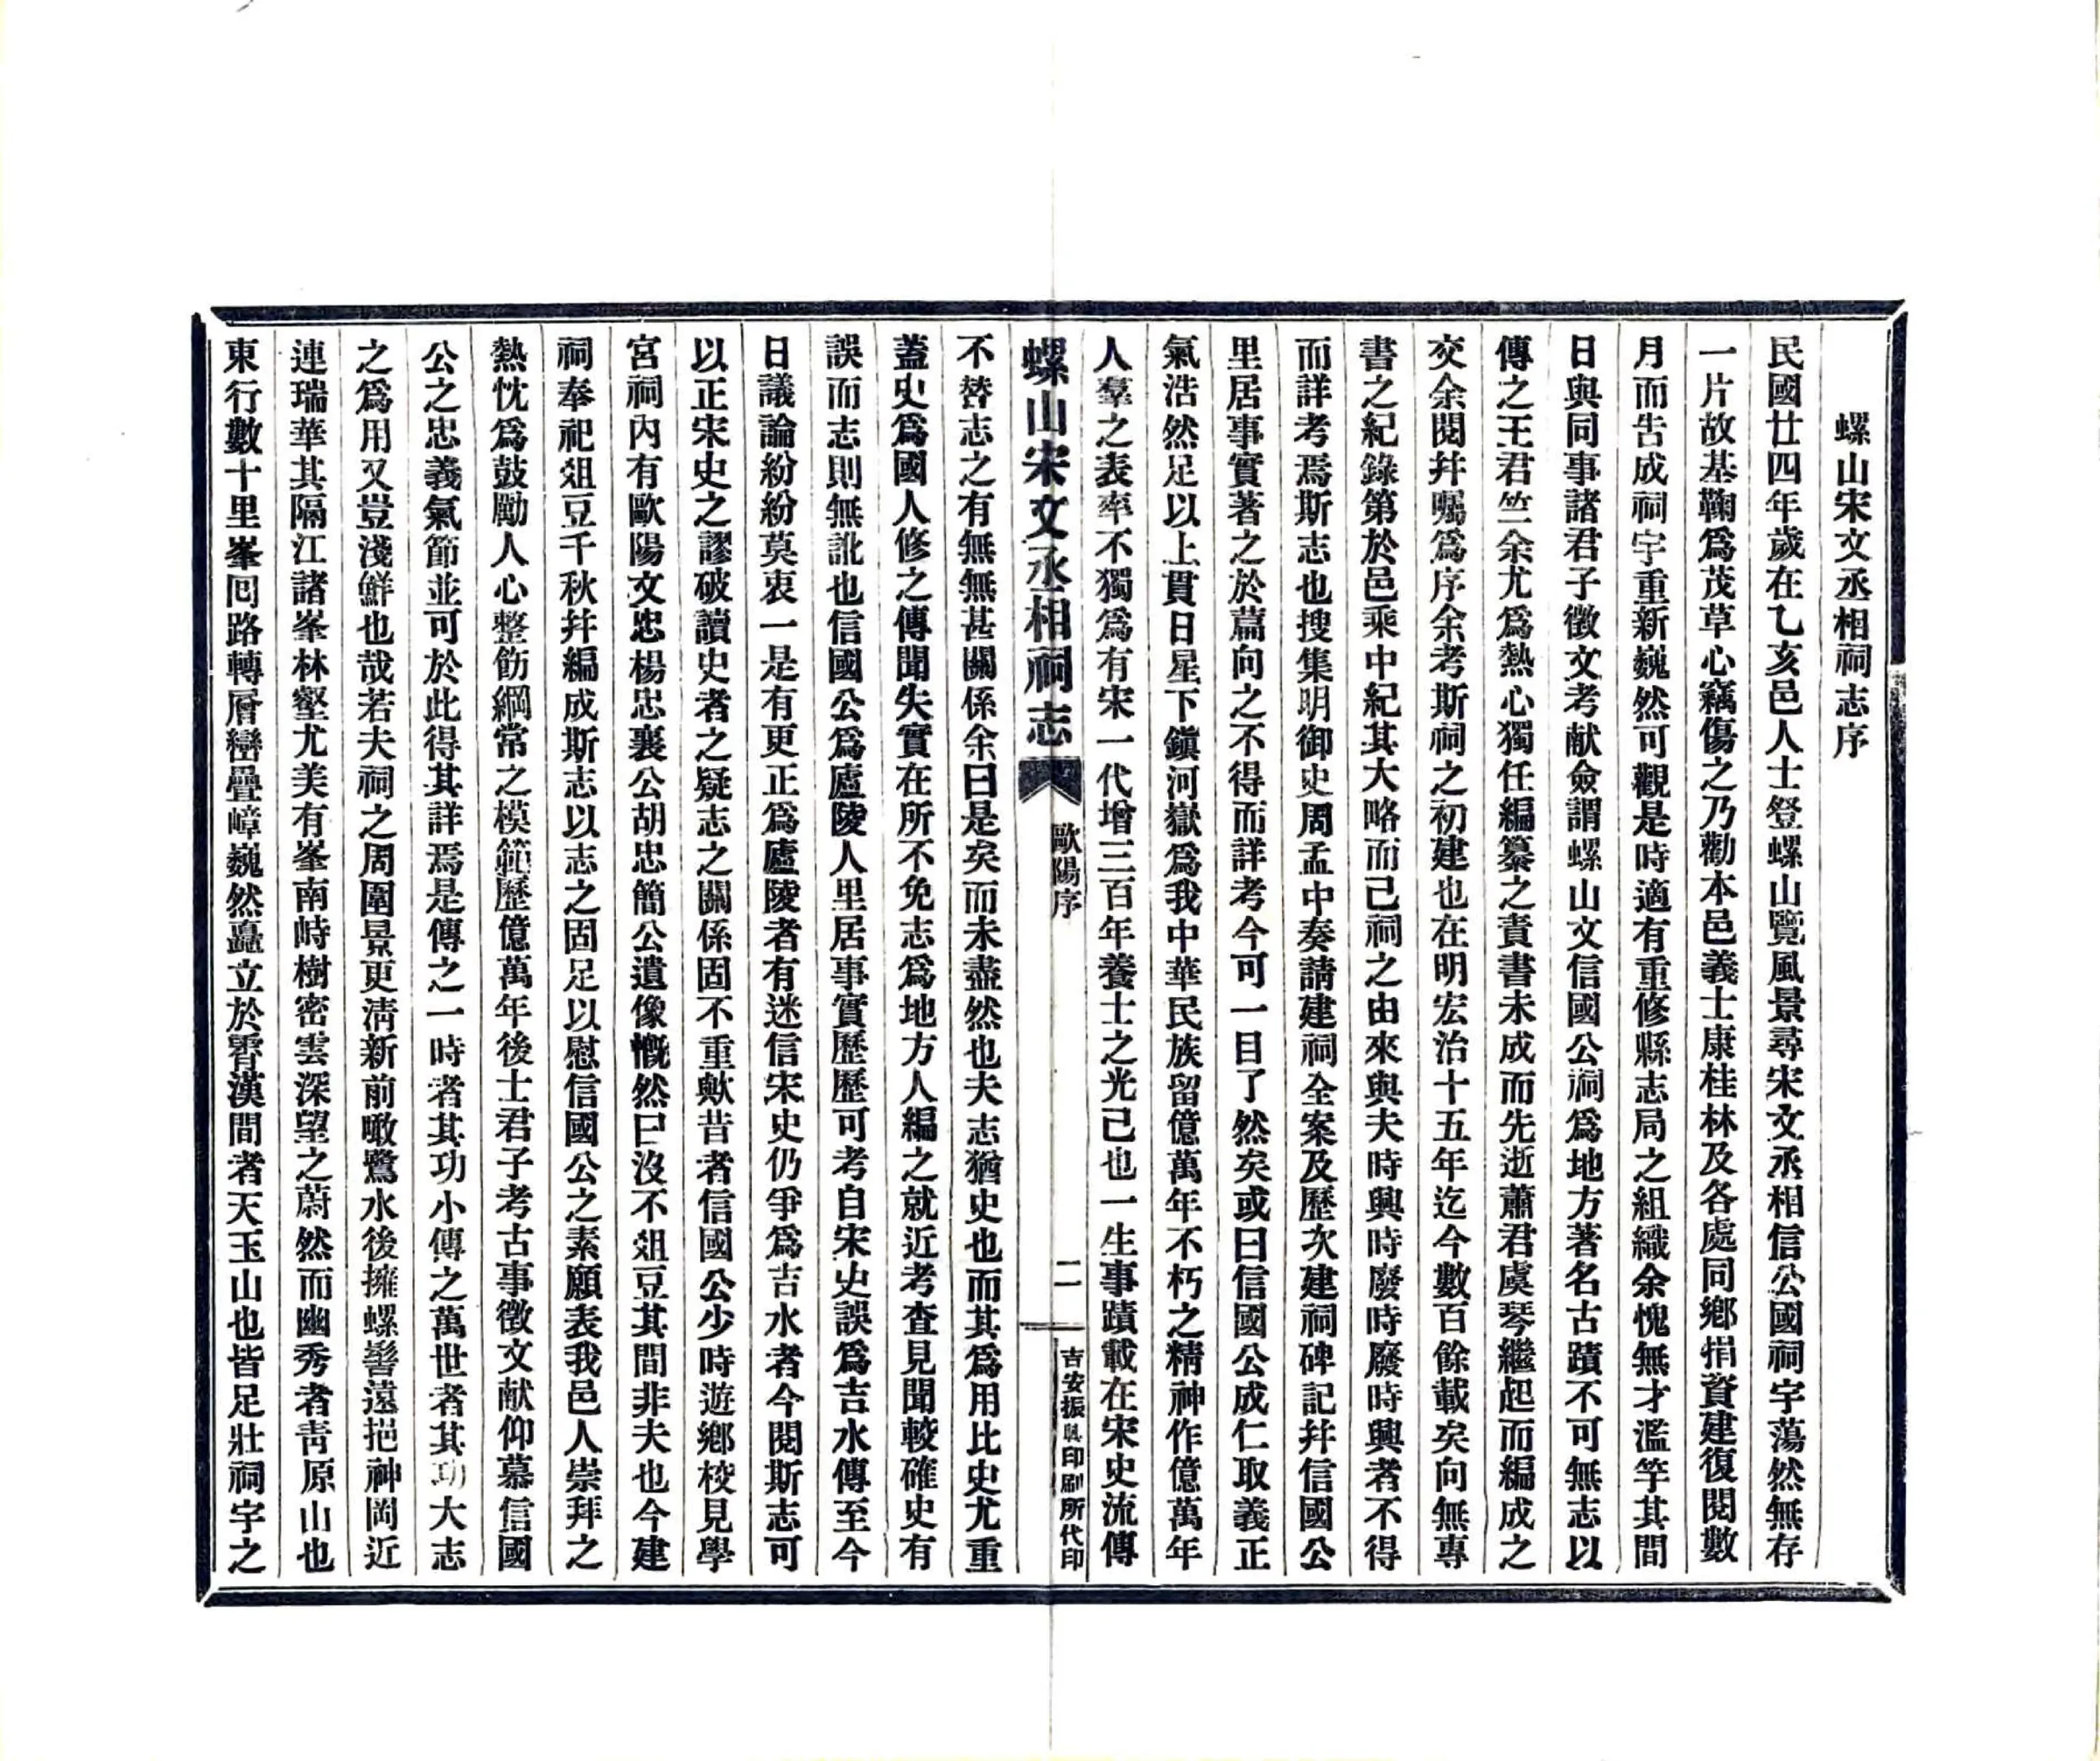 螺山宋文丞相祠志序
民國廿四年歲在乙亥邑人士登螺山覽風景尋宋文丞相信公國祠宇蕩然無存
一片故基鞠爲茂草心竊傷之乃勸本邑義士康桂林及各處同鄉捐資建復閱數
月而告成祠宇重新巍然可觀是時適有重修縣志局之組織余愧無才濫竽其間
日與同事諸君子徵文考献僉謂螺山文信國公祠爲地方著名古蹟不可無志以
傳之王君竺余尤爲熱心獨任編纂之責書未成而先逝蕭君虞琴繼起而編成之
交余閱幷囑爲序余考斯祠之初建也在明宏治十五年迄今數百餘載矣向無專
書之紀錄第於邑乘中紀其大略而已祠之由來與夫時興時廢時廢時興者不得
而詳考焉斯志也搜集明御史周孟中奏請建祠全案及歷次建祠碑記幷信國公
里居事實著之於篇向之不得而詳考今可一目了然矣或曰信國公成仁取義正
氣浩然足以上貫日星下鎭河嶽爲我中華民族留億萬年不朽之精神作億萬年
人羣之表率不獨爲有宋一代增三百年養士之光已也一生事蹟載在宋史流傳
螺山宋文丞相祠志
歐陽序
二
吉安振興印刷所代印
不替志之有無無甚關係余曰是矣而未盡然也夫志猶史也而其爲用比史尤重
蓋史爲國人修之傳聞失實在所不免志爲地方人編之就近考查見聞較確史有
誤而志則無訛也信國公爲廬陵人里居事實歷歷可考自宋史誤爲吉水傳至今
日議論紛紛莫衷一是有更正爲廬陵者有迷信宋史仍爭爲吉水者今閱斯志可
以正宋史之謬破讀史者之疑志之關係固不重歟昔者信國公少時遊鄉校見學
宮祠內有歐陽文忠楊忠襄公胡忠簡公遺像慨然曰沒不俎豆其間非夫也今建
祠奉祀俎豆千秋幷編成斯志以志之固足以慰信國公之素願表我邑人崇拜之
熱忱爲鼓勵人心整飭綱常之模範歷億萬年後士君子考古事徵文献仰慕信國
公之忠義氣節並可於此得其詳焉是傳之一時者其功小傳之萬世者其功大志
之爲用又豈淺鮮也哉若夫祠之周圍景更清新前瞰鷺水後擁螺髻遠挹神岡近
連瑞華其隔江諸峯林壑尤美有峯南峙樹密雲深望之蔚然而幽秀者青原山也
東行數十里峯回路轉層巒疊嶂巍然矗立於霄漢間者天玉山也皆足壯祠宇之